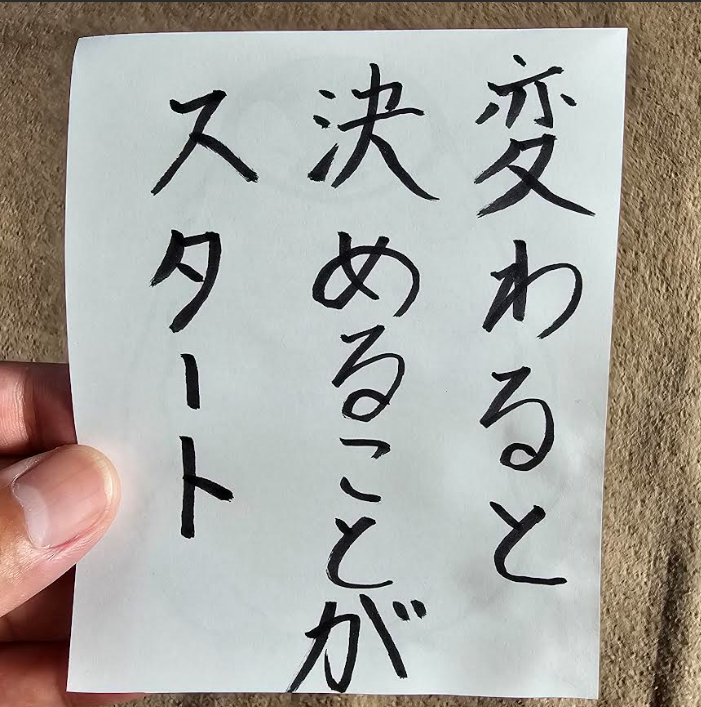 変わると
決めることが
スタート